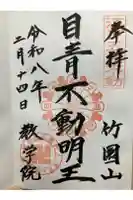 奉拝
竹園山
目青不動明王
教学院
令和八年
二月十四日